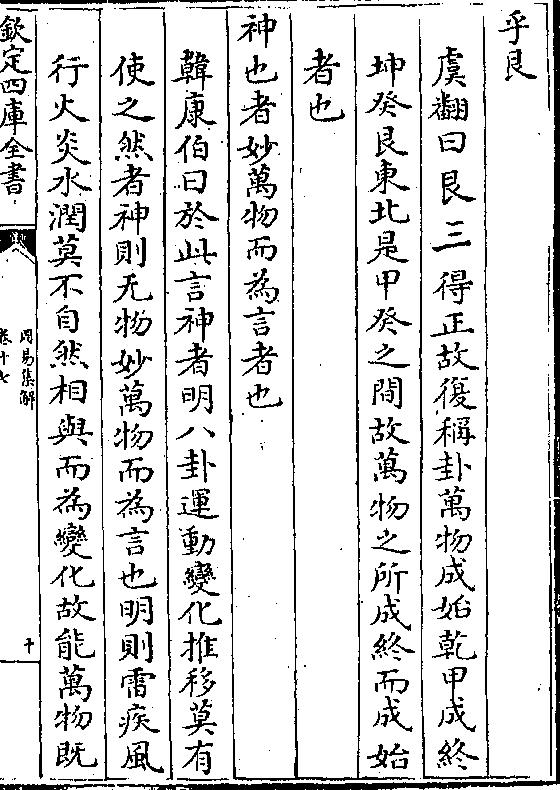 乎艮
虞翻曰艮三得正故復稱卦萬物成始乾甲成終
坤癸艮東北是甲癸之間故萬物之所成終而成始
者也
神也者妙萬物而為言者也
韓康伯曰於此言神者明八卦運動變化推移莫有
使之然者神則无物妙萬物而為言也明則雷疾風
行火炎水潤莫不自然相與而為變化故能萬物既
欽定四庫全書
周易集解
卷十七
十